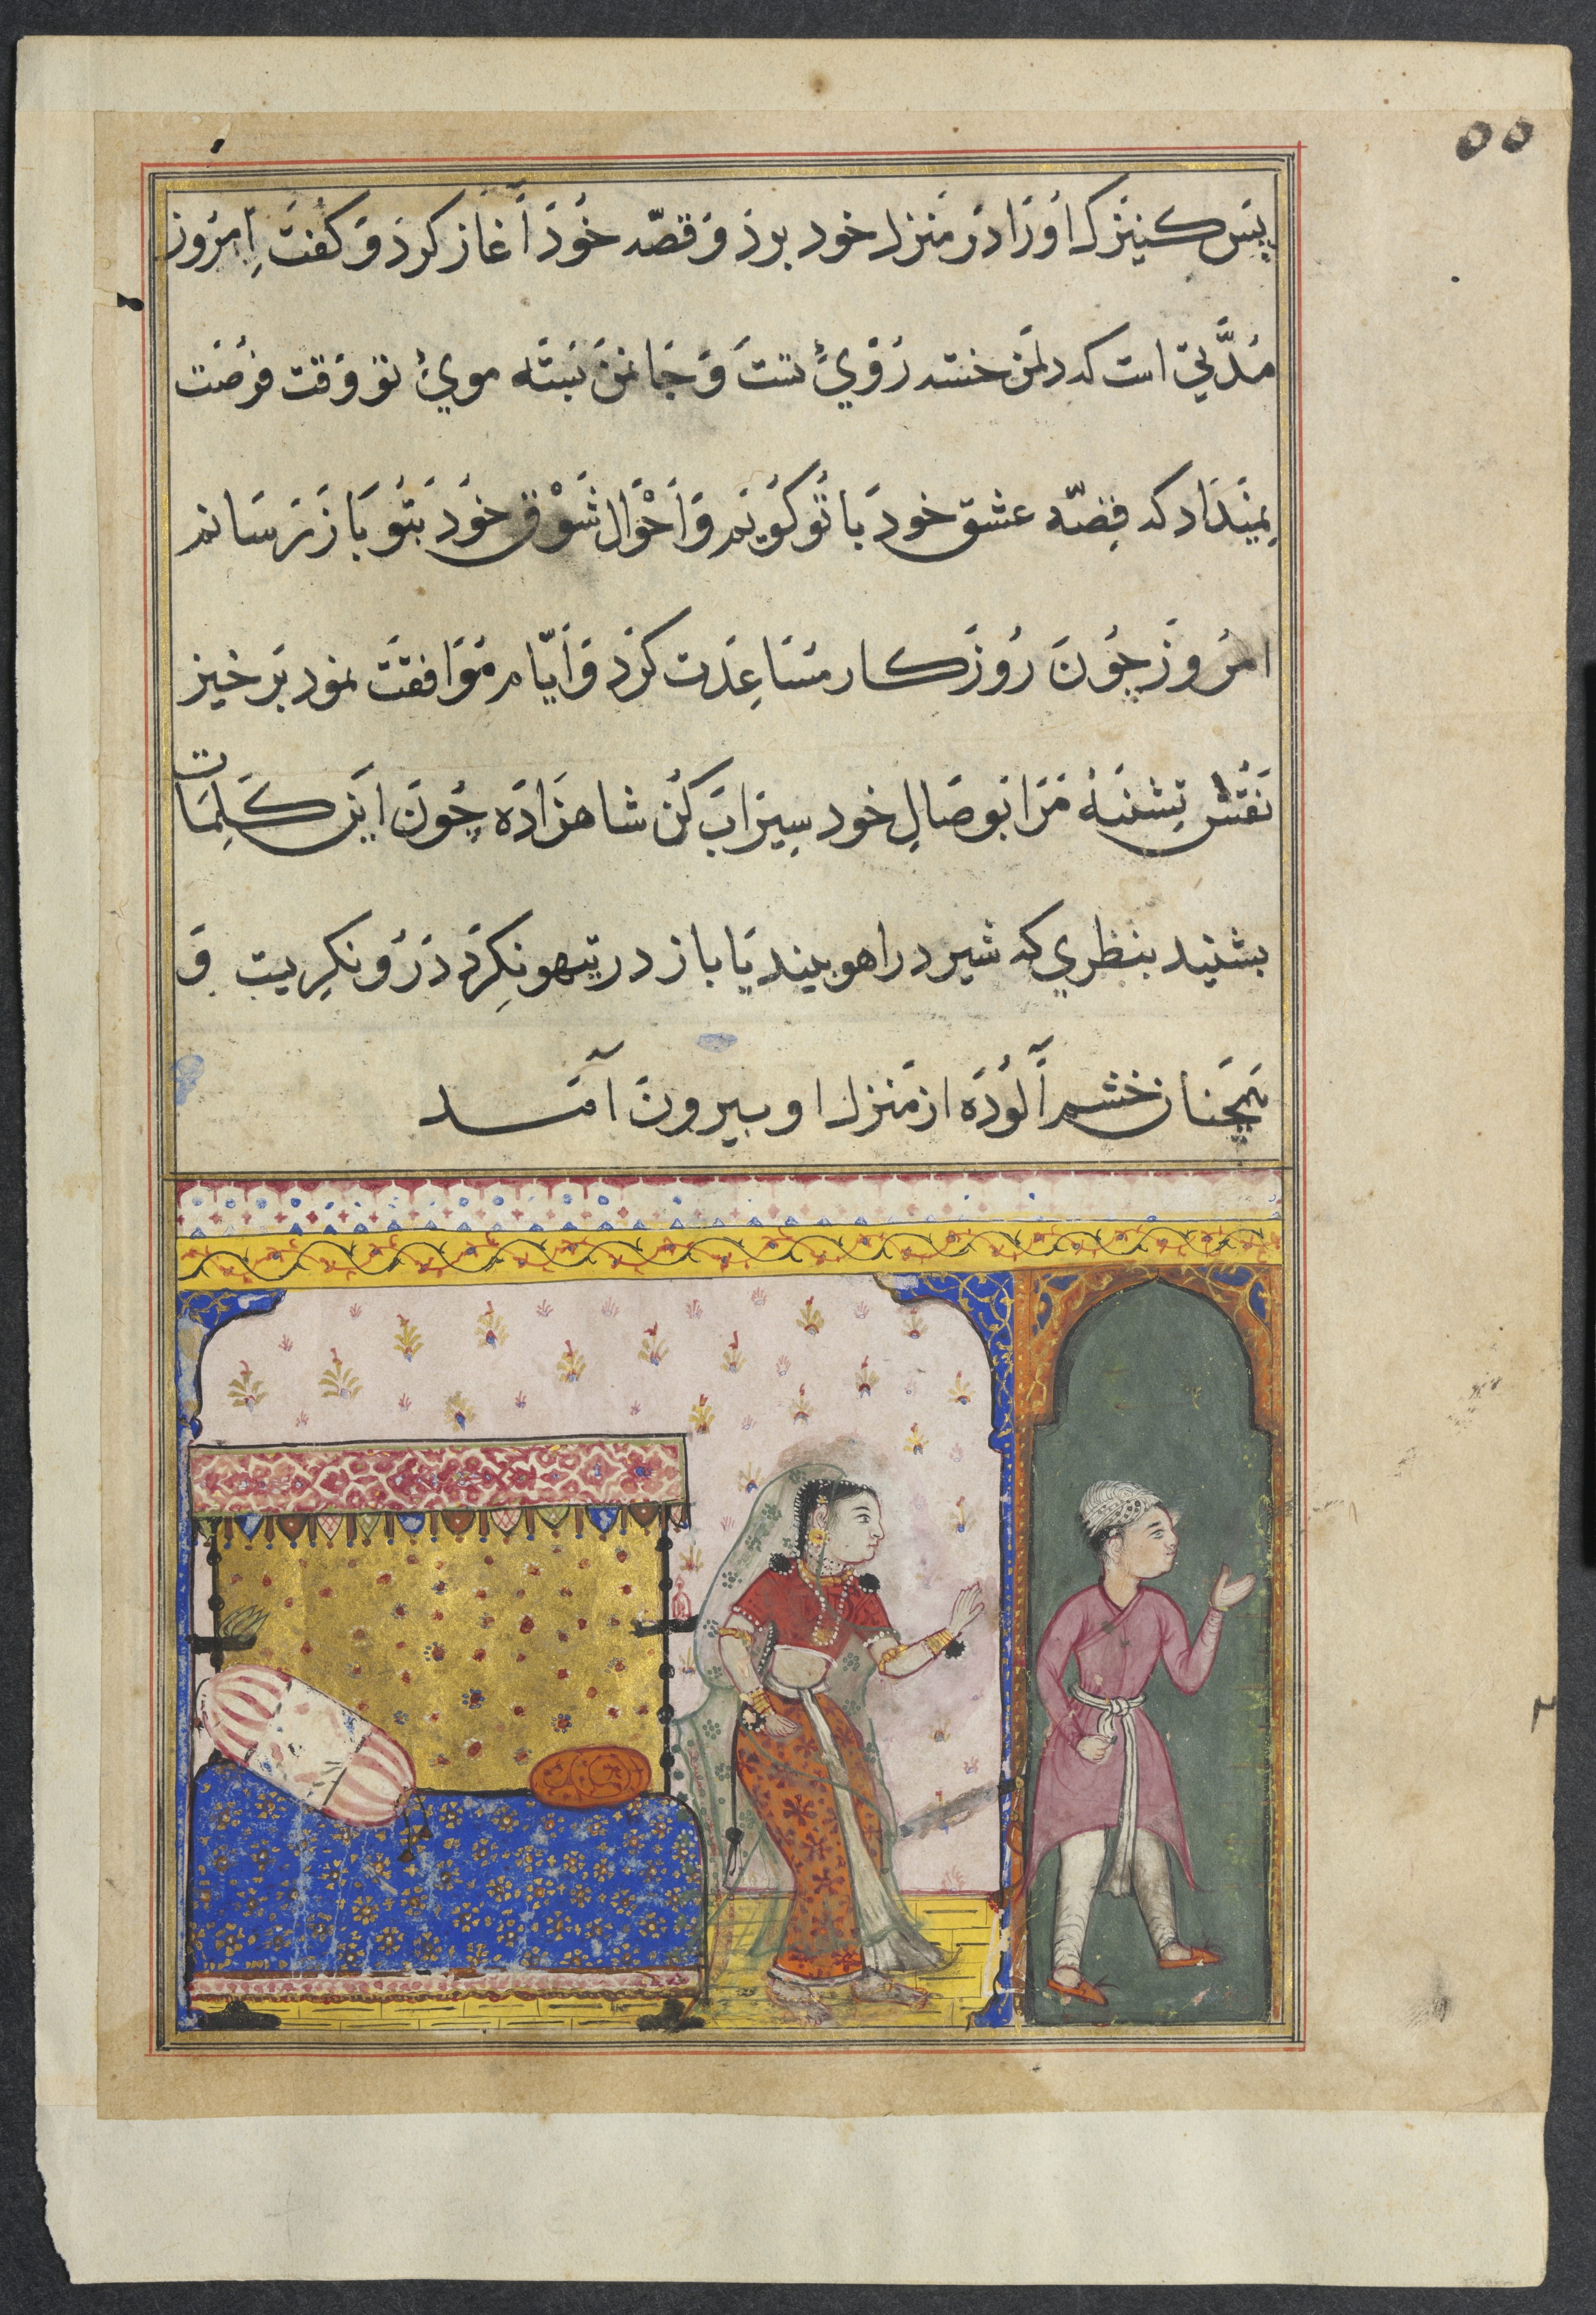 ۵۵
پس کنیزک او را در منزل خود برد و قصّه خود آغاز کرد و کفت امروز
مدّتی است که دل من خسته رویٔ تست و جان من بسته مویٔ تو وقت فرصت
نمیداد که قصّه عشق خود با تو کویم و احوال شوق خود بتو باز رسانم
امروز چون روزکار مساعدت کرد و ایّام موافقت نمود برخیز
نفس تشنهٔ مرا بوصال خود سیراب کن شاهزاده چون این کلمات
بشنید بنظری که شیر در اهو بیند یا باز در تیهو نکرد درو نکریت و
همچنان خشم آلوده از منزل او بیرون آمد